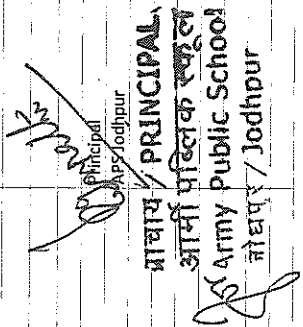 Principal
APS Jodhpur
प्राचार्य / PRINCIPAL
आर्मी पब्लिक स्कूल
Army Public School
जोधपुर / Jodhpur